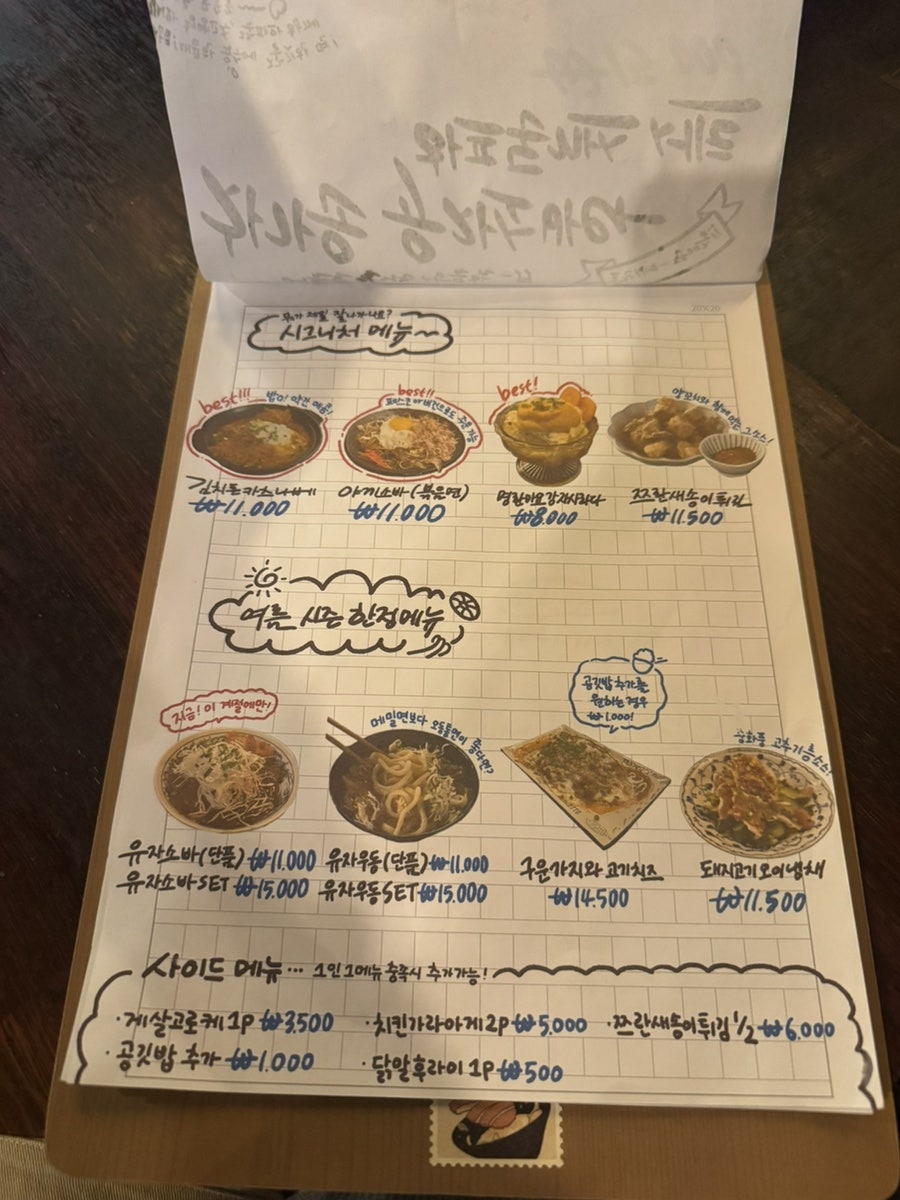 20X20
뭐가 제일 잘나가나요?
시그니처 메뉴~
best!!! 밥이 약간 예름!
김치돈카츠나베
₩11.000
best!!
야끼소바 (볶음면)
₩11.000
best!
명란마요감자사라다
₩8.000
쯔란새송이튀김
₩11.500
여름 시즌 한정메뉴
지금! 이 계절에만!
유자소바(단품) ₩11.000
유자소바SET ₩15.000
메밀면보다 우동면이 좋다면?
유자우동(단품) ₩11.000
유자우동SET ₩15.000
공깃밥 추가를
원하는 경우
₩1.000!
구운가지와 고기치즈
₩14.500
중화풍 고추기름소스!
돼지고기오이냉채
₩11.500
사이드 메뉴... 1인 1메뉴 충족시 추가가능!
·게살고로케 1P ₩3,500
·치킨가라아게 2P ₩5,000
·쯔란새송이튀김 1/2 ₩6,000
·공깃밥 추가 ₩1.000
·닭알후라이 1P ₩500